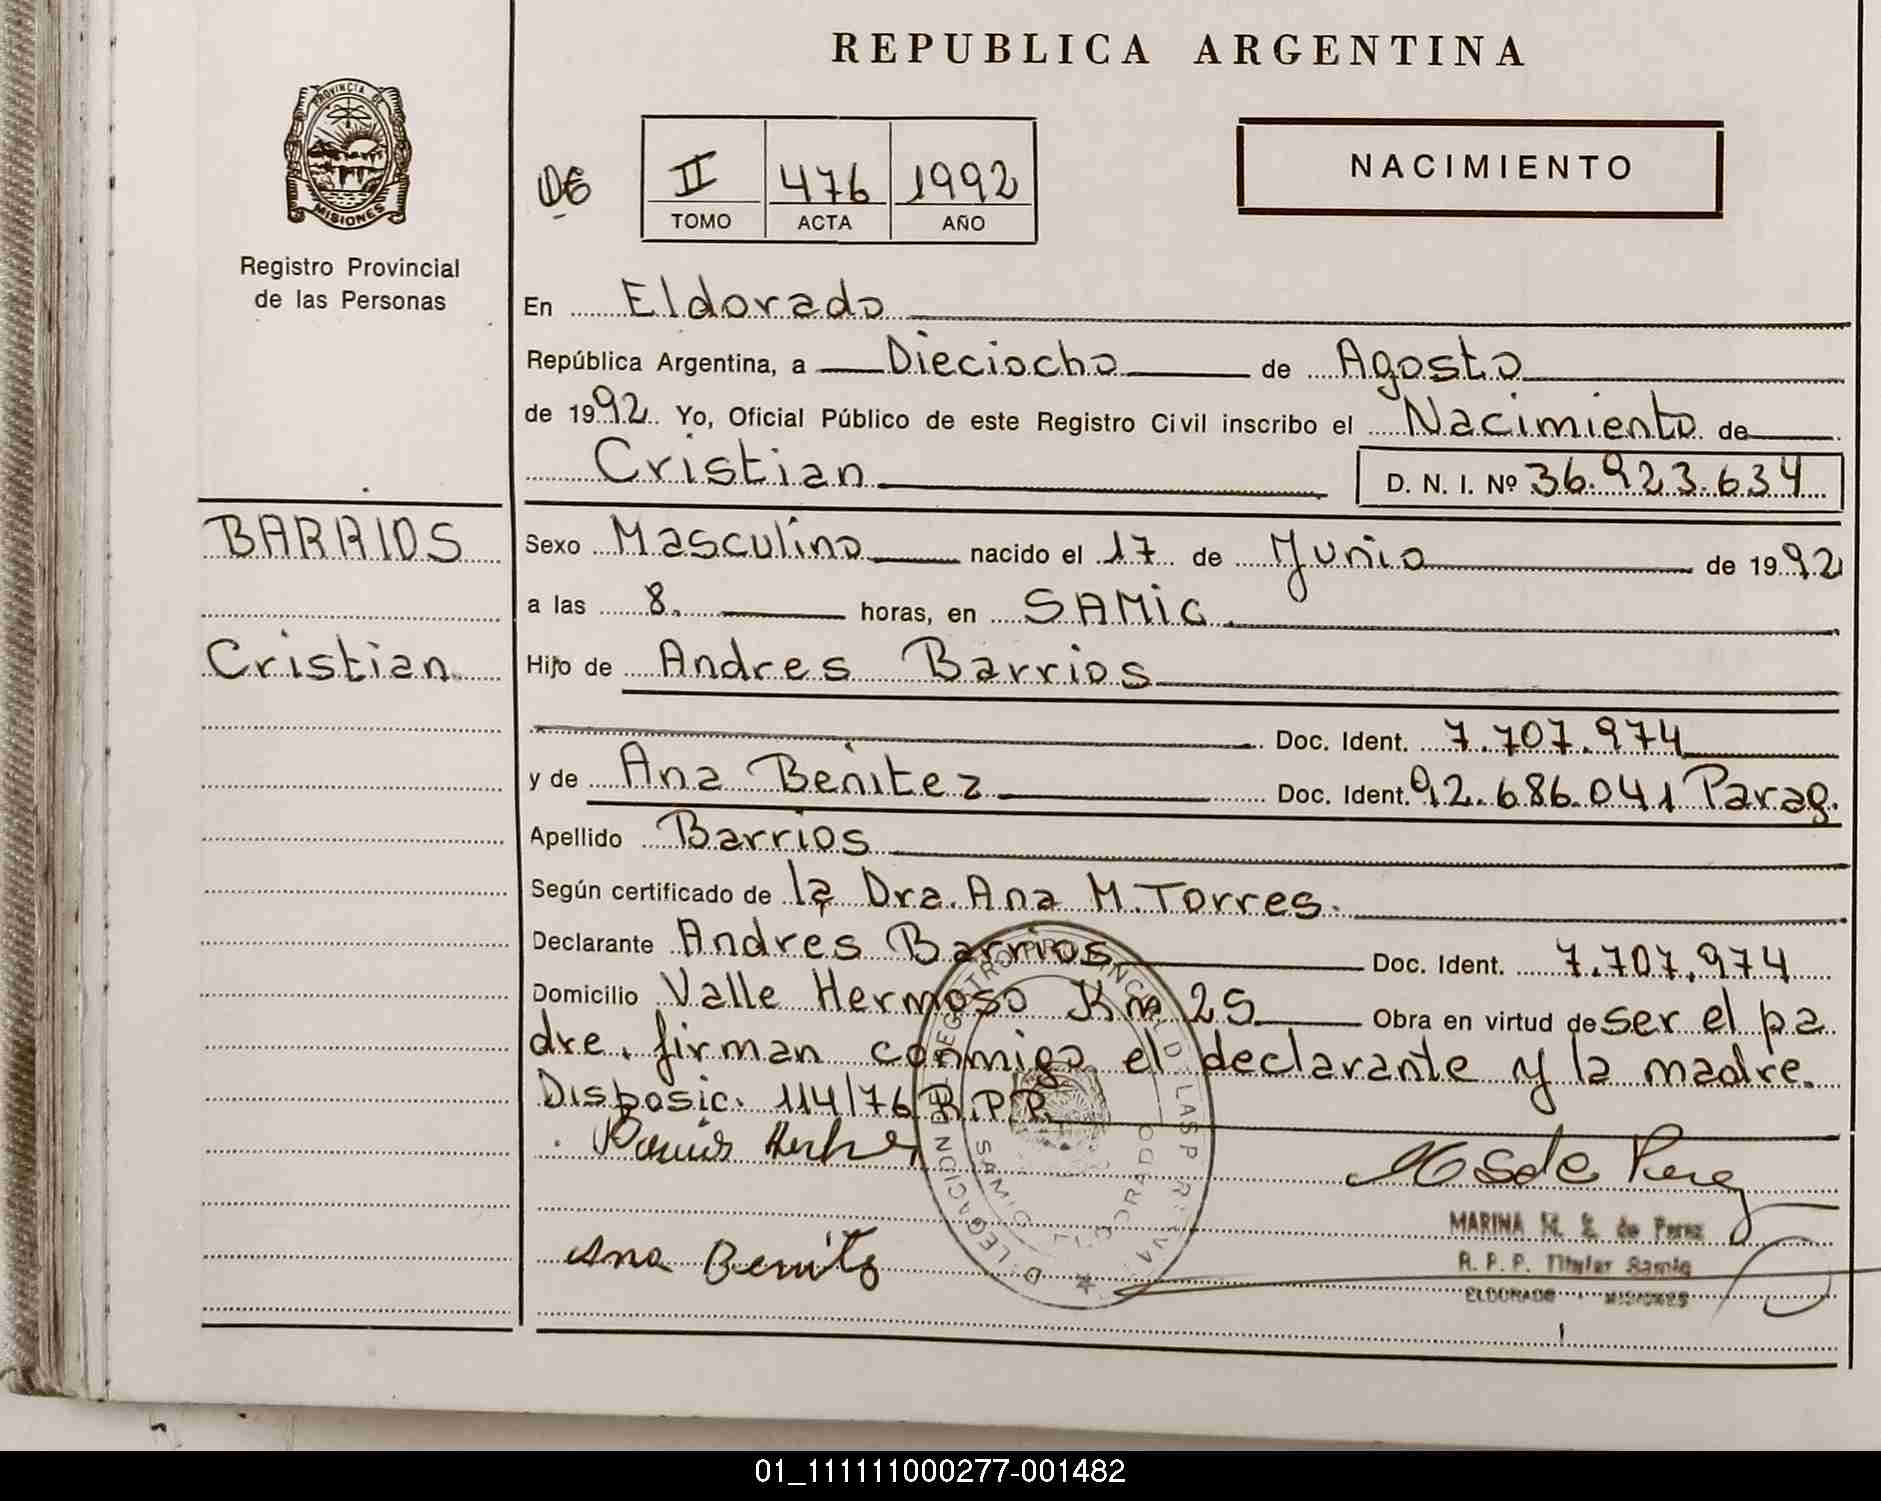 REPUBLICA ARGENTINA
PROVINCIA DE
MISIONES
Registro Provincial
de las Personas
II 476 1992
TOMO ACTA AÑO
NACIMIENTO
En Eldorado
República Argentina, a Dieciocho de Agosto
de 1992. Yo, Oficial Público de este Registro Civil inscribo el Nacimiento de
Cristian D. N. I. Nº 36.923.634
BARRIOS
Cristian
Sexo Masculino nacido el 17 de Junio de 1992
a las 8. horas, en SAMIC.
Hijo de Andres Barrios
Doc. Ident. 7.707.974
y de Ana Benitez Doc. Ident. 92.686.041 Parag.
Apellido Barrios
Según certificado de la Dra. Ana M. Torres.
Declarante Andres Barrios Doc. Ident. 7.707.974
Domicilio Valle Hermoso Km 25 Obra en virtud de ser el pa
dre. firman conmigo el declarante y la madre.
Disposic. 114/76 R.P.P.
Ana Benitez
MARINA M. S. de Perez
R. P. P. Titular Samic
ELDORADO - MISIONES
01_111111000277-001482